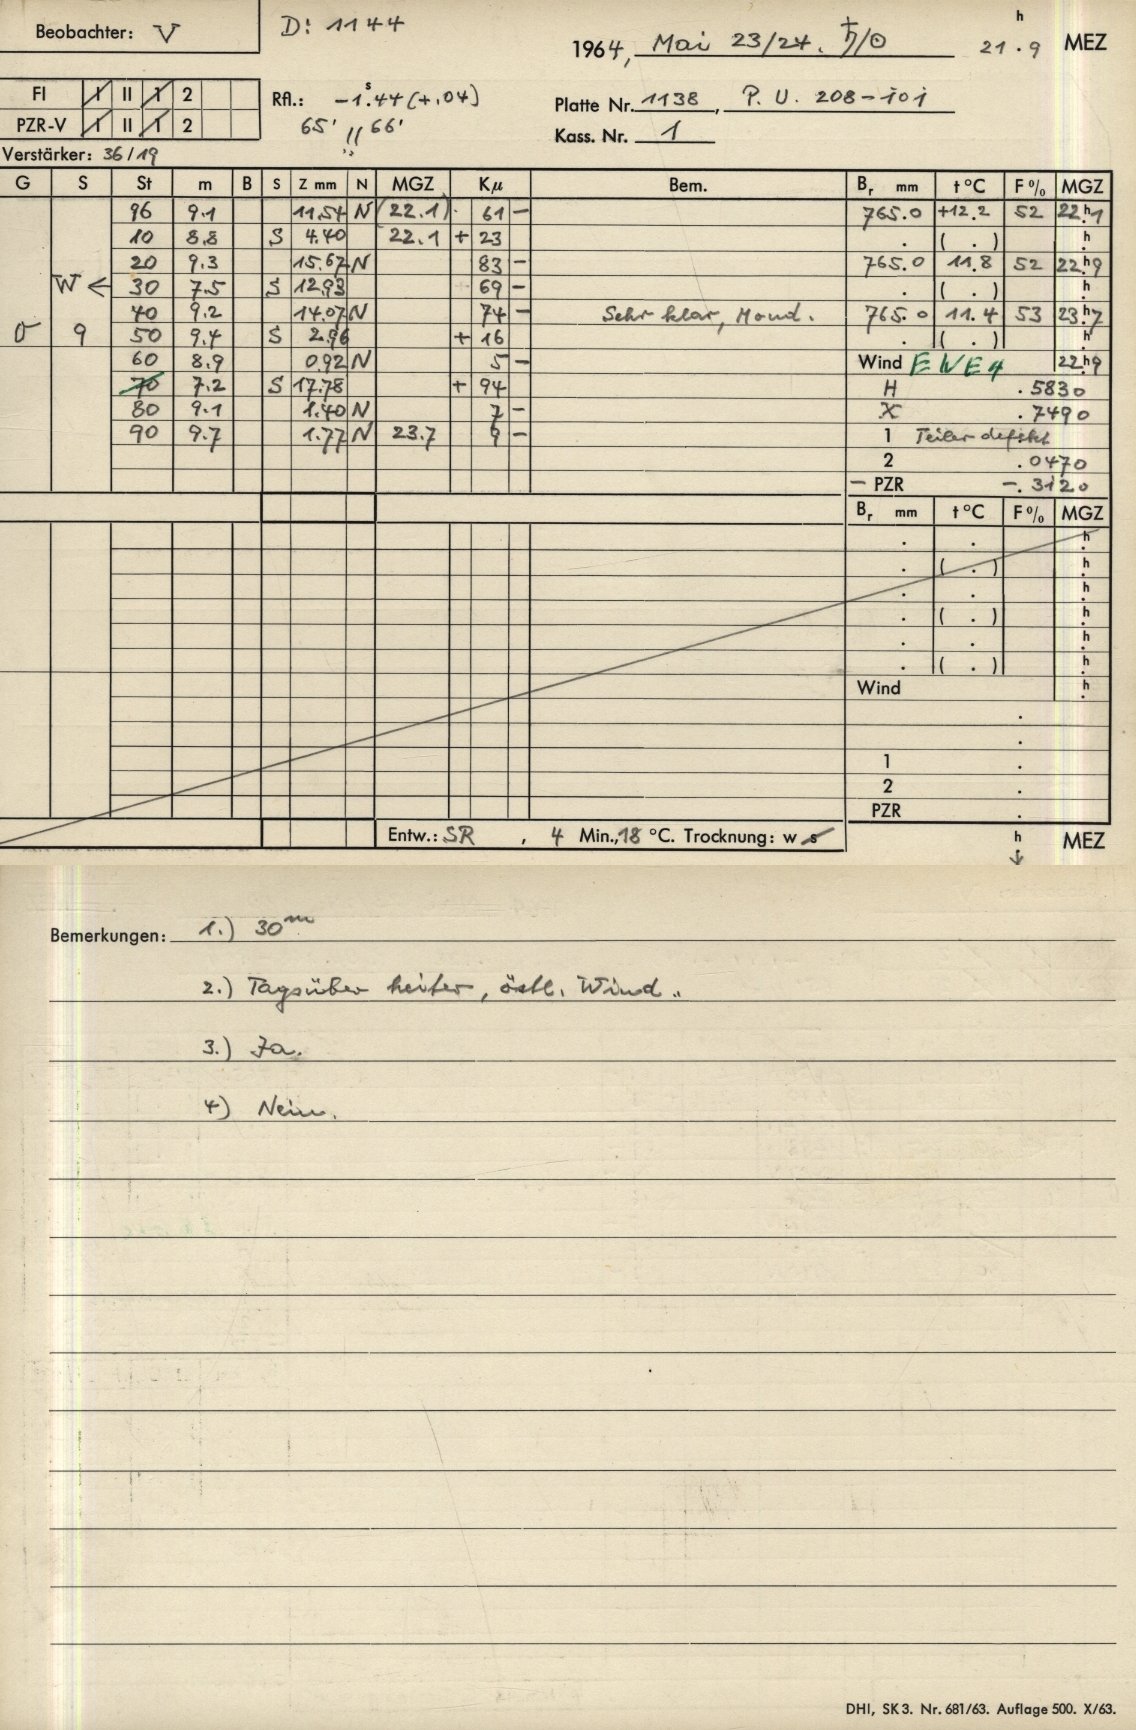 Beobachter: V
D: 1144
1964, Mai 23/24. ♄/☉ 21 h . 9 MEZ
FI I II 1 2
Rfl.: -1ˢ.44 (+.04)
Platte Nr. 1138, P. U. 208-101
PZR-V I II 1 2
65' 66'
Kass. Nr. 1
Verstärker: 36/19
G S St m B S Z mm N MGZ Kμ Bem. Bᵣ mm t °C F % MGZ
96 9.1 11.54 N (22.1) 61 - 765.0 +12.2 52 22ʰ.1
10 8.8 S 4.40 22.1 + 23 . ( . ) h.
20 9.3 15.67 N 83 - 765.0 11.8 52 22ʰ.9
W ← 30 7.5 S 12.93 69 - . ( . ) h.
40 9.2 14.07 N 74 - Sehr klar, Mond. 765.0 11.4 53 23ʰ.7
σ 9 50 9.4 S 2.96 + 16 . ( . ) h.
60 8.9 0.92 N 5 - Wind E W E 4 22ʰ.9
70 7.2 S 17.78 + 94 H .5830
80 9.1 1.40 N 7 - X .7490
90 9.7 1.77 N 23.7 9 - 1 Teiler defekt
2 .0470
- PZR -.3120
Bᵣ mm t °C F % MGZ
. . h.
. ( . ) h.
. . h.
. ( . ) h.
. . h.
. ( . ) h.
Wind h.
.
.
1 .
2 .
PZR .
Entw.: SR , 4 Min., 18 °C. Trocknung: w s
h MEZ
↓
Bemerkungen: 1.) 30ᵐ
2.) Tagsüber heiter, östl. Wind.
3.) Ja.
4) Nein.
DHI, SK 3. Nr. 681/63. Auflage 500. X/63.